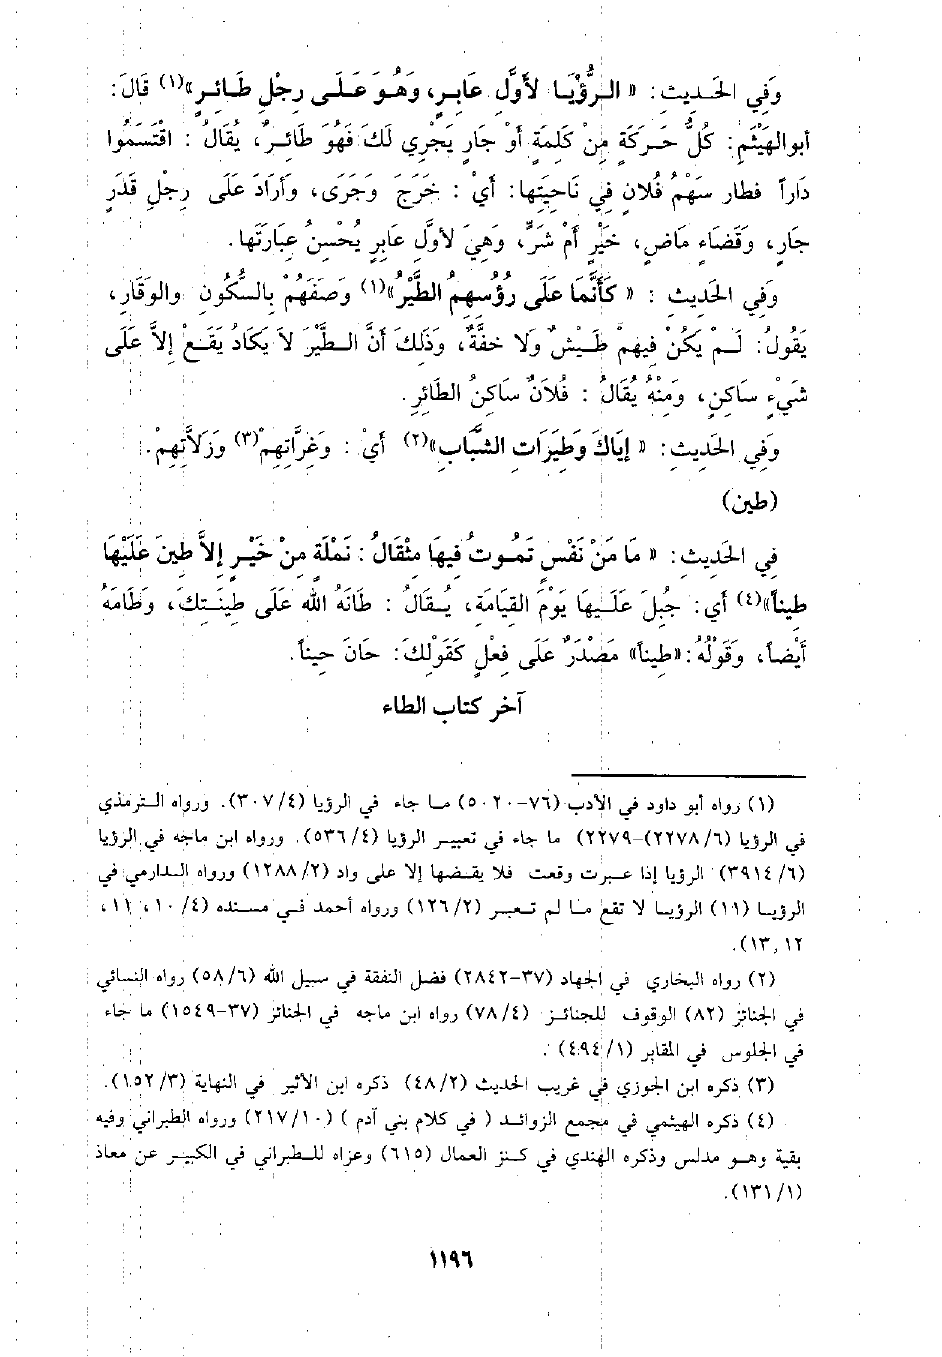 وَفِي الحَديثِ: « الرُّؤْيَا لأَوَّل عَابِرٍ، وَهُوَ عَلَى رِجْلِ طَائِرٍ»(١) قَالَ:
أبوالهَيْثَمِ: كُلُّ حَرَكَةٍ مِنْ كَلِمَةٍ أَوْ جَارٍ يَجْرِي لَكَ فَهُوَ طَائِرٌ، يُقَالُ : اقْتَسَمُوا
دَاراً فطار سَهْمُ فُلانٍ فِي نَاحِيَتِها: أيْ : خَرَجَ وَجَرَى، وَأَرَادَ عَلَى رِجْلِ قَدَرٍ
جارٍ، وَقَضَاءٍ مَاضٍ، خَيْرٍ أَمْ شَرٍّ، وَهِيَ لأَوَّلِ عَابِرٍ يُحْسِنُ عِبَارَتَها.
وَفِي الحَديثِ : « كَأَنَّمَا عَلَى رُؤُسِهِمُ الطَّيْرُ»(١) وَصَفَهُمْ بِالسُّكُونِ والوَقَارِ،
يَقُولُ: لَمْ يَكُنْ فِيهِمْ طَيْشٌ وَلا خفَّةٌ، وَذَلِكَ أَنَّ الطَّيْرَ لاَ يَكَادُ يَقَعُ إلاَّ عَلَى
شَيْءٍ سَاكِنٍ، وَمِنْهُ يُقَالُ : فُلاَنٌ سَاكِنُ الطَّائِرِ.
وَفِي الحَديثِ: « إيَاكَ وَطَيَرَات الشَّبَابِ»(٢) أيْ : وَغِرَّاتِهِمْ(٣) وَزَلاَّتِهِمْ.
(طين)
فِي الحَديثِ: « مَا مَنْ نَفْسٍ تَمُوتُ فِيهَا مِثْقَالُ : نَمْلَة مِنْ خَيْرٍ إلاَّ طِينَ عَلَيْهَا
طيناً»(٤) أي: جُبِلَ عَلَيهَا يَوْمَ القِيَامَة، يُقَالُ : طَانَهُ الله عَلَى طِينَتِكَ، وَطَامَهُ
أَيْضاً، وَقَوْلُهُ:«طيناً» مَصْدَرٌ عَلَى فِعْلٍ كَقَوْلِكَ: حَانَ حِيناً.
آخر كتاب الطاء
(١) رواه أبو داود في الأدب (٧٦-٥٠٢٠) ما جاء في الرؤيا (٣٠٧/٤). ورواه الترمذي
في الرؤيا (٢٢٧٨/٦)-٢٢٧٩) ما جاء في تعبير الرؤيا (٥٣٦/٤). ورواه ابن ماجه في الرؤيا
(٣٩١٤/٦) الرؤيا إذا عبرت وقعت فلا يقضها إلا على واد (١٢٨٨/٢) ورواه الدارمي في
الرؤيا (١١) الرؤيا لا تقع ما لم تعبر (١٢٦/٢) ورواه أحمد في مسنده (١٠/٤، ١١،
١٣,١٢).
(٢) رواه البخاري في الجهاد (٣٧-٢٨٤٢) فضل النفقة في سبيل الله (٥٨/٦) رواه النسائي
في الجنائز (٨٢) الوقوف للجنائز (٧٨/٤) رواه ابن ماجه في الجنائز (٣٧-١٥٤٩) ما جاء
في الجلوس في المقابر (٤٩٤/١) .
(٣) ذكره ابن الجوزي في غريب الحديث (٤٨/٢) ذكره ابن الأثير في النهاية (١٥٢/٣).
(٤) ذكره الهيثمي في مجمع الزوائد ( في كلام بني آدم ) (٢١٧/١٠) ورواه الطبراني وفيه
بقية وهو مدلس وذكره الهندي في كنز العمال (٦١٥) وعزاه للطبراني في الكبير عن معاذ
(١٣١/١).
١١٩٦